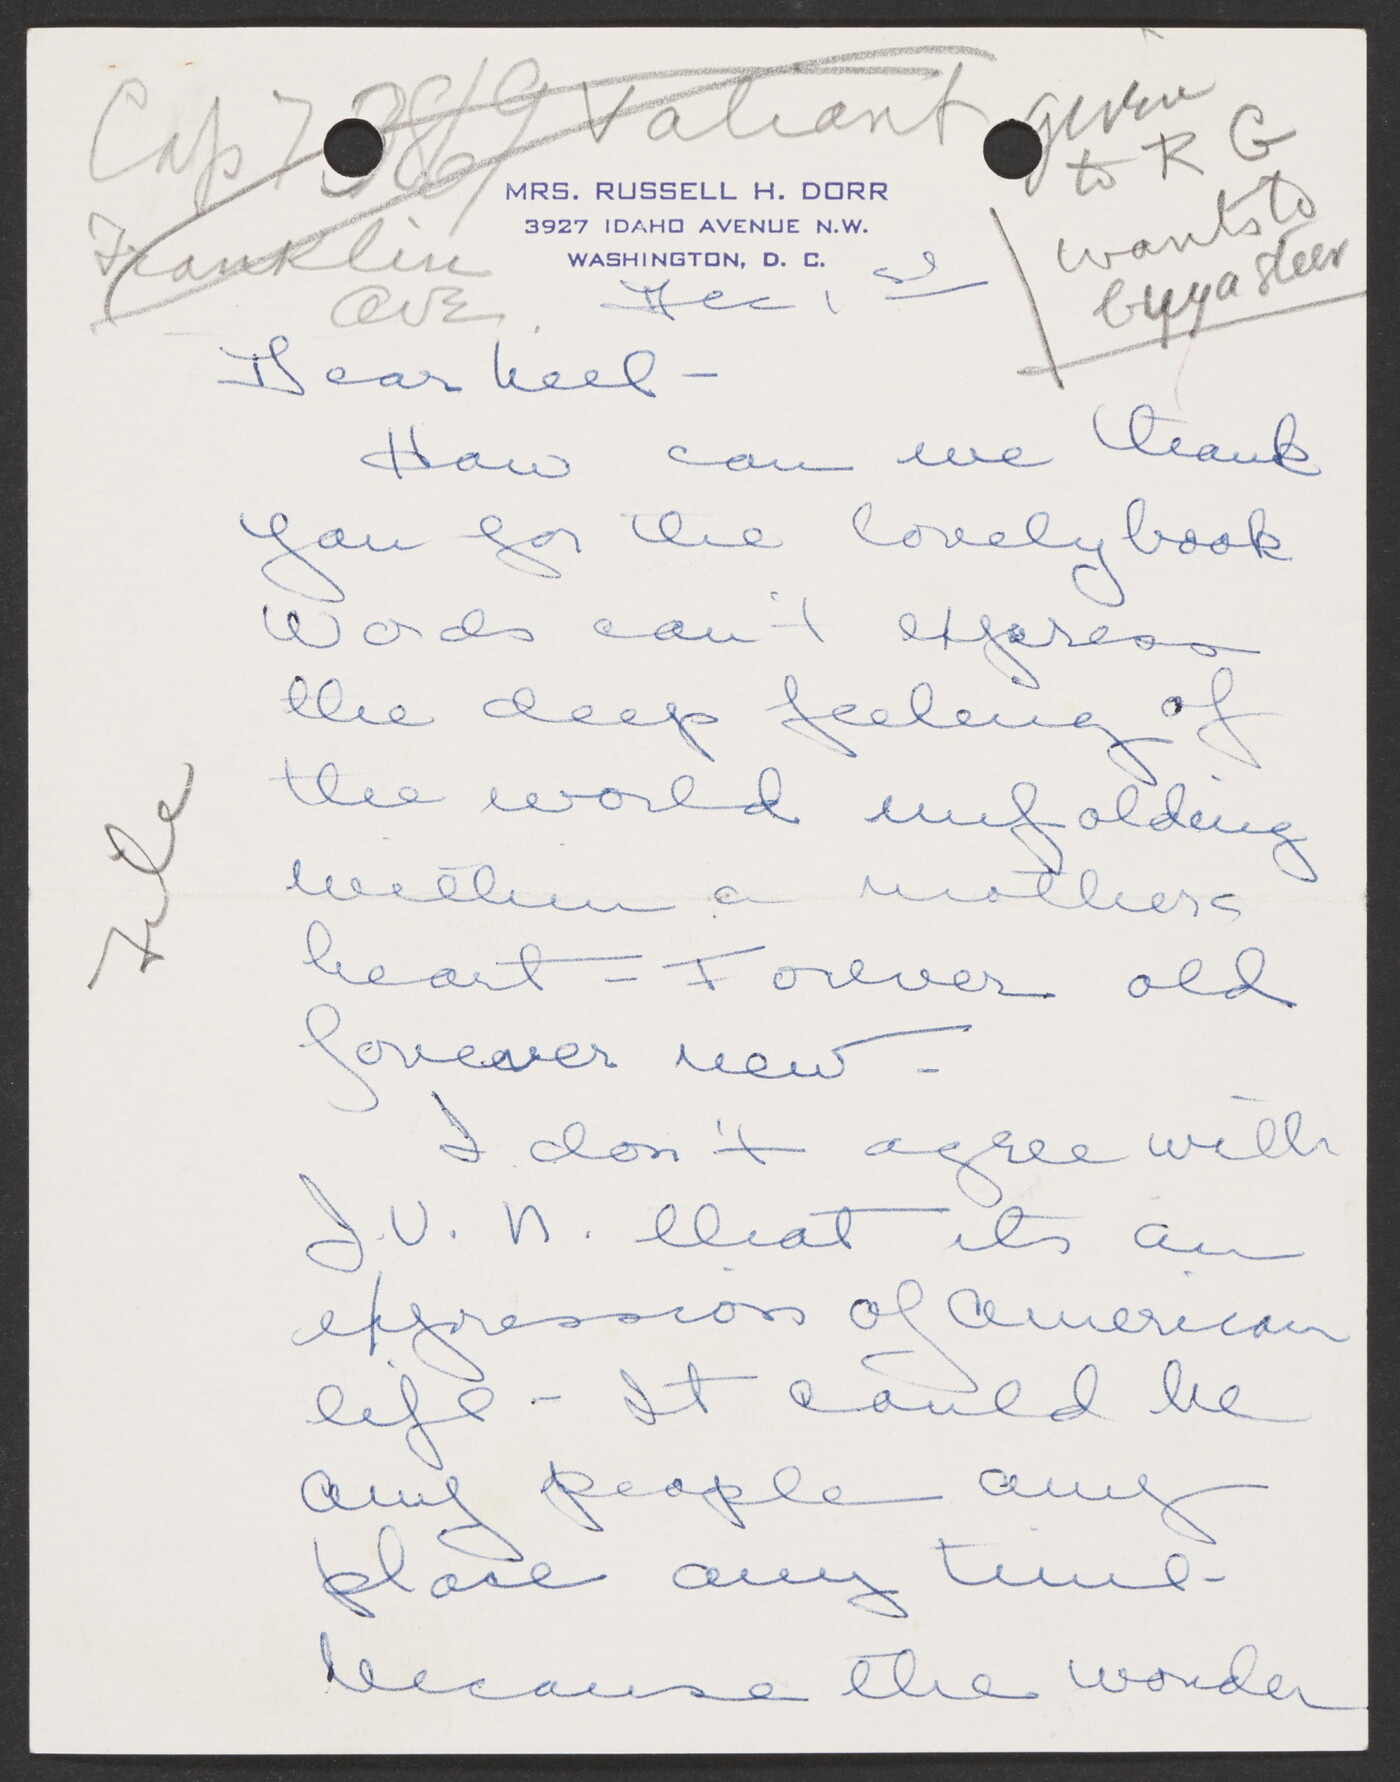 Cap 7 3869 Valiant
Franklin
Ave.
given
to R G
wants to
buy a steer
MRS. RUSSELL H. DORR
3927 IDAHO AVENUE N.W.
WASHINGTON, D. C.
Dec 1st
Dear Neel -
How can we thank
you for the lovely book
Words can't express
the deep feeling of
the world unfolding
within a mothers
heart = Forever old
forever new -
I don't agree with
J. U. N. that its an
expression of American
life - It could be
any people any
place any time -
because the wonder
File